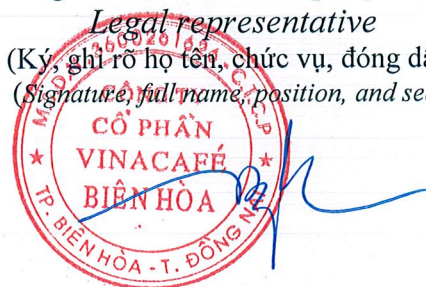 Legal representative
(Ký, ghi rõ họ tên, chức vụ, đóng dấ
(Signature, full name, position, and sea
M.S.D.N: 3600261654 - C.T.C.P
CÔNG TY
CỔ PHẦN
VINACAFÉ
BIÊN HÒA
TP. BIÊN HÒA - T. ĐỒNG NAI